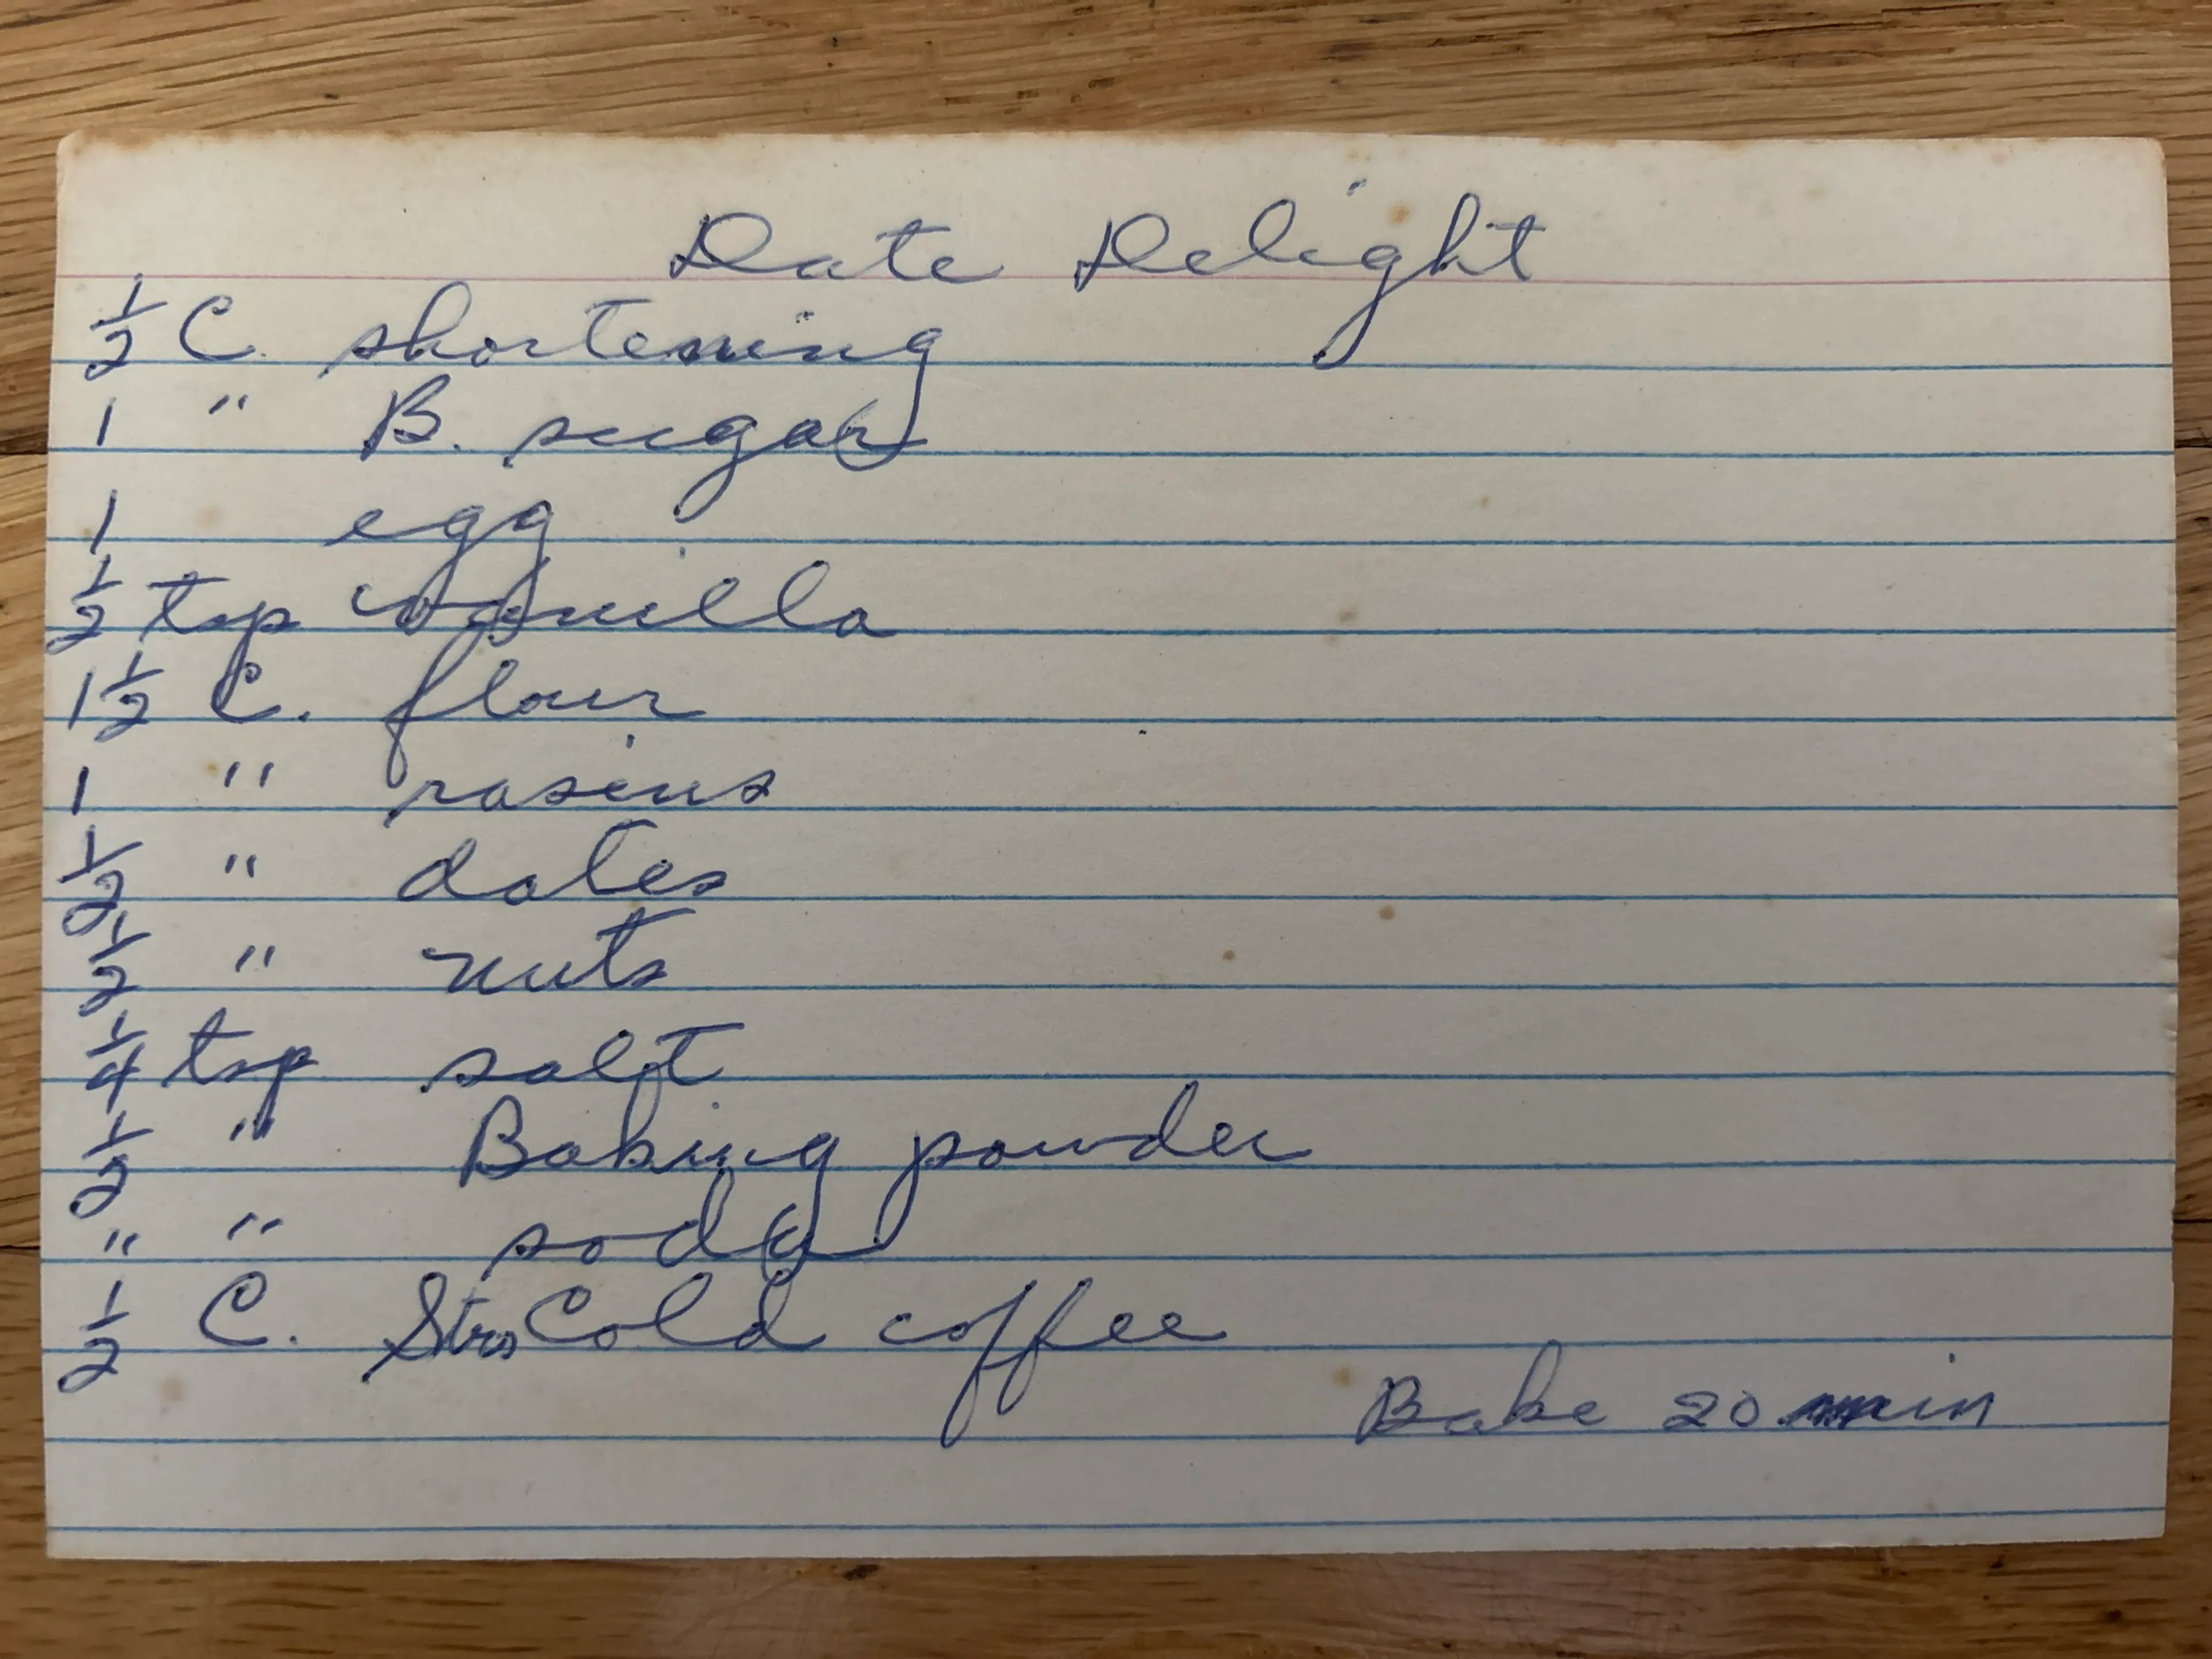 Date Delight
1/2 C. shortening
1 " B. sugar
1 egg
1/2 tsp vanilla
1 1/2 C. flour
1 " rasins
1/2 " dates
1/2 " nuts
1/4 tsp salt
1/2 " Baking powder
" " soda
1/2 C. Cold coffee
Bake 20 min